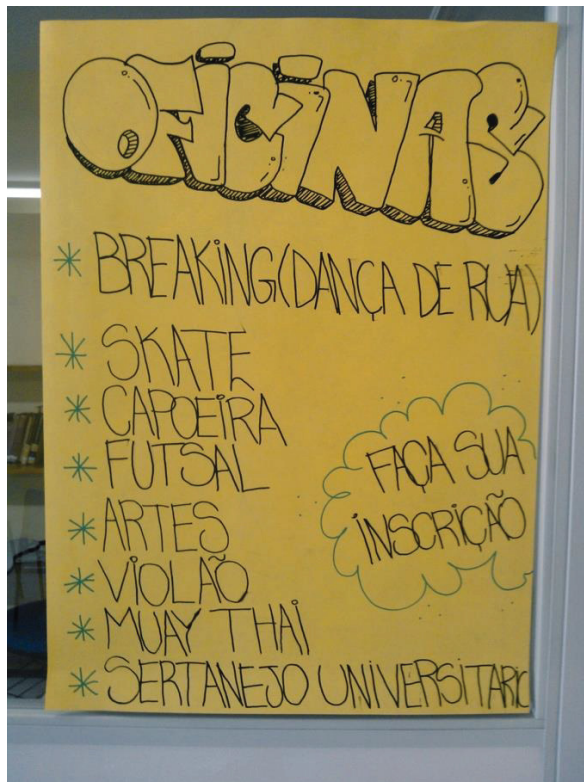 OFICINAS
* BREAKING (DANÇA DE RUA)
* SKATE
* CAPOEIRA
* FUTSAL
* ARTES
* VIOLÃO
* MUAY THAI
* SERTANEJO UNIVERSITARIO
FAÇA SUA
INSCRIÇÃO